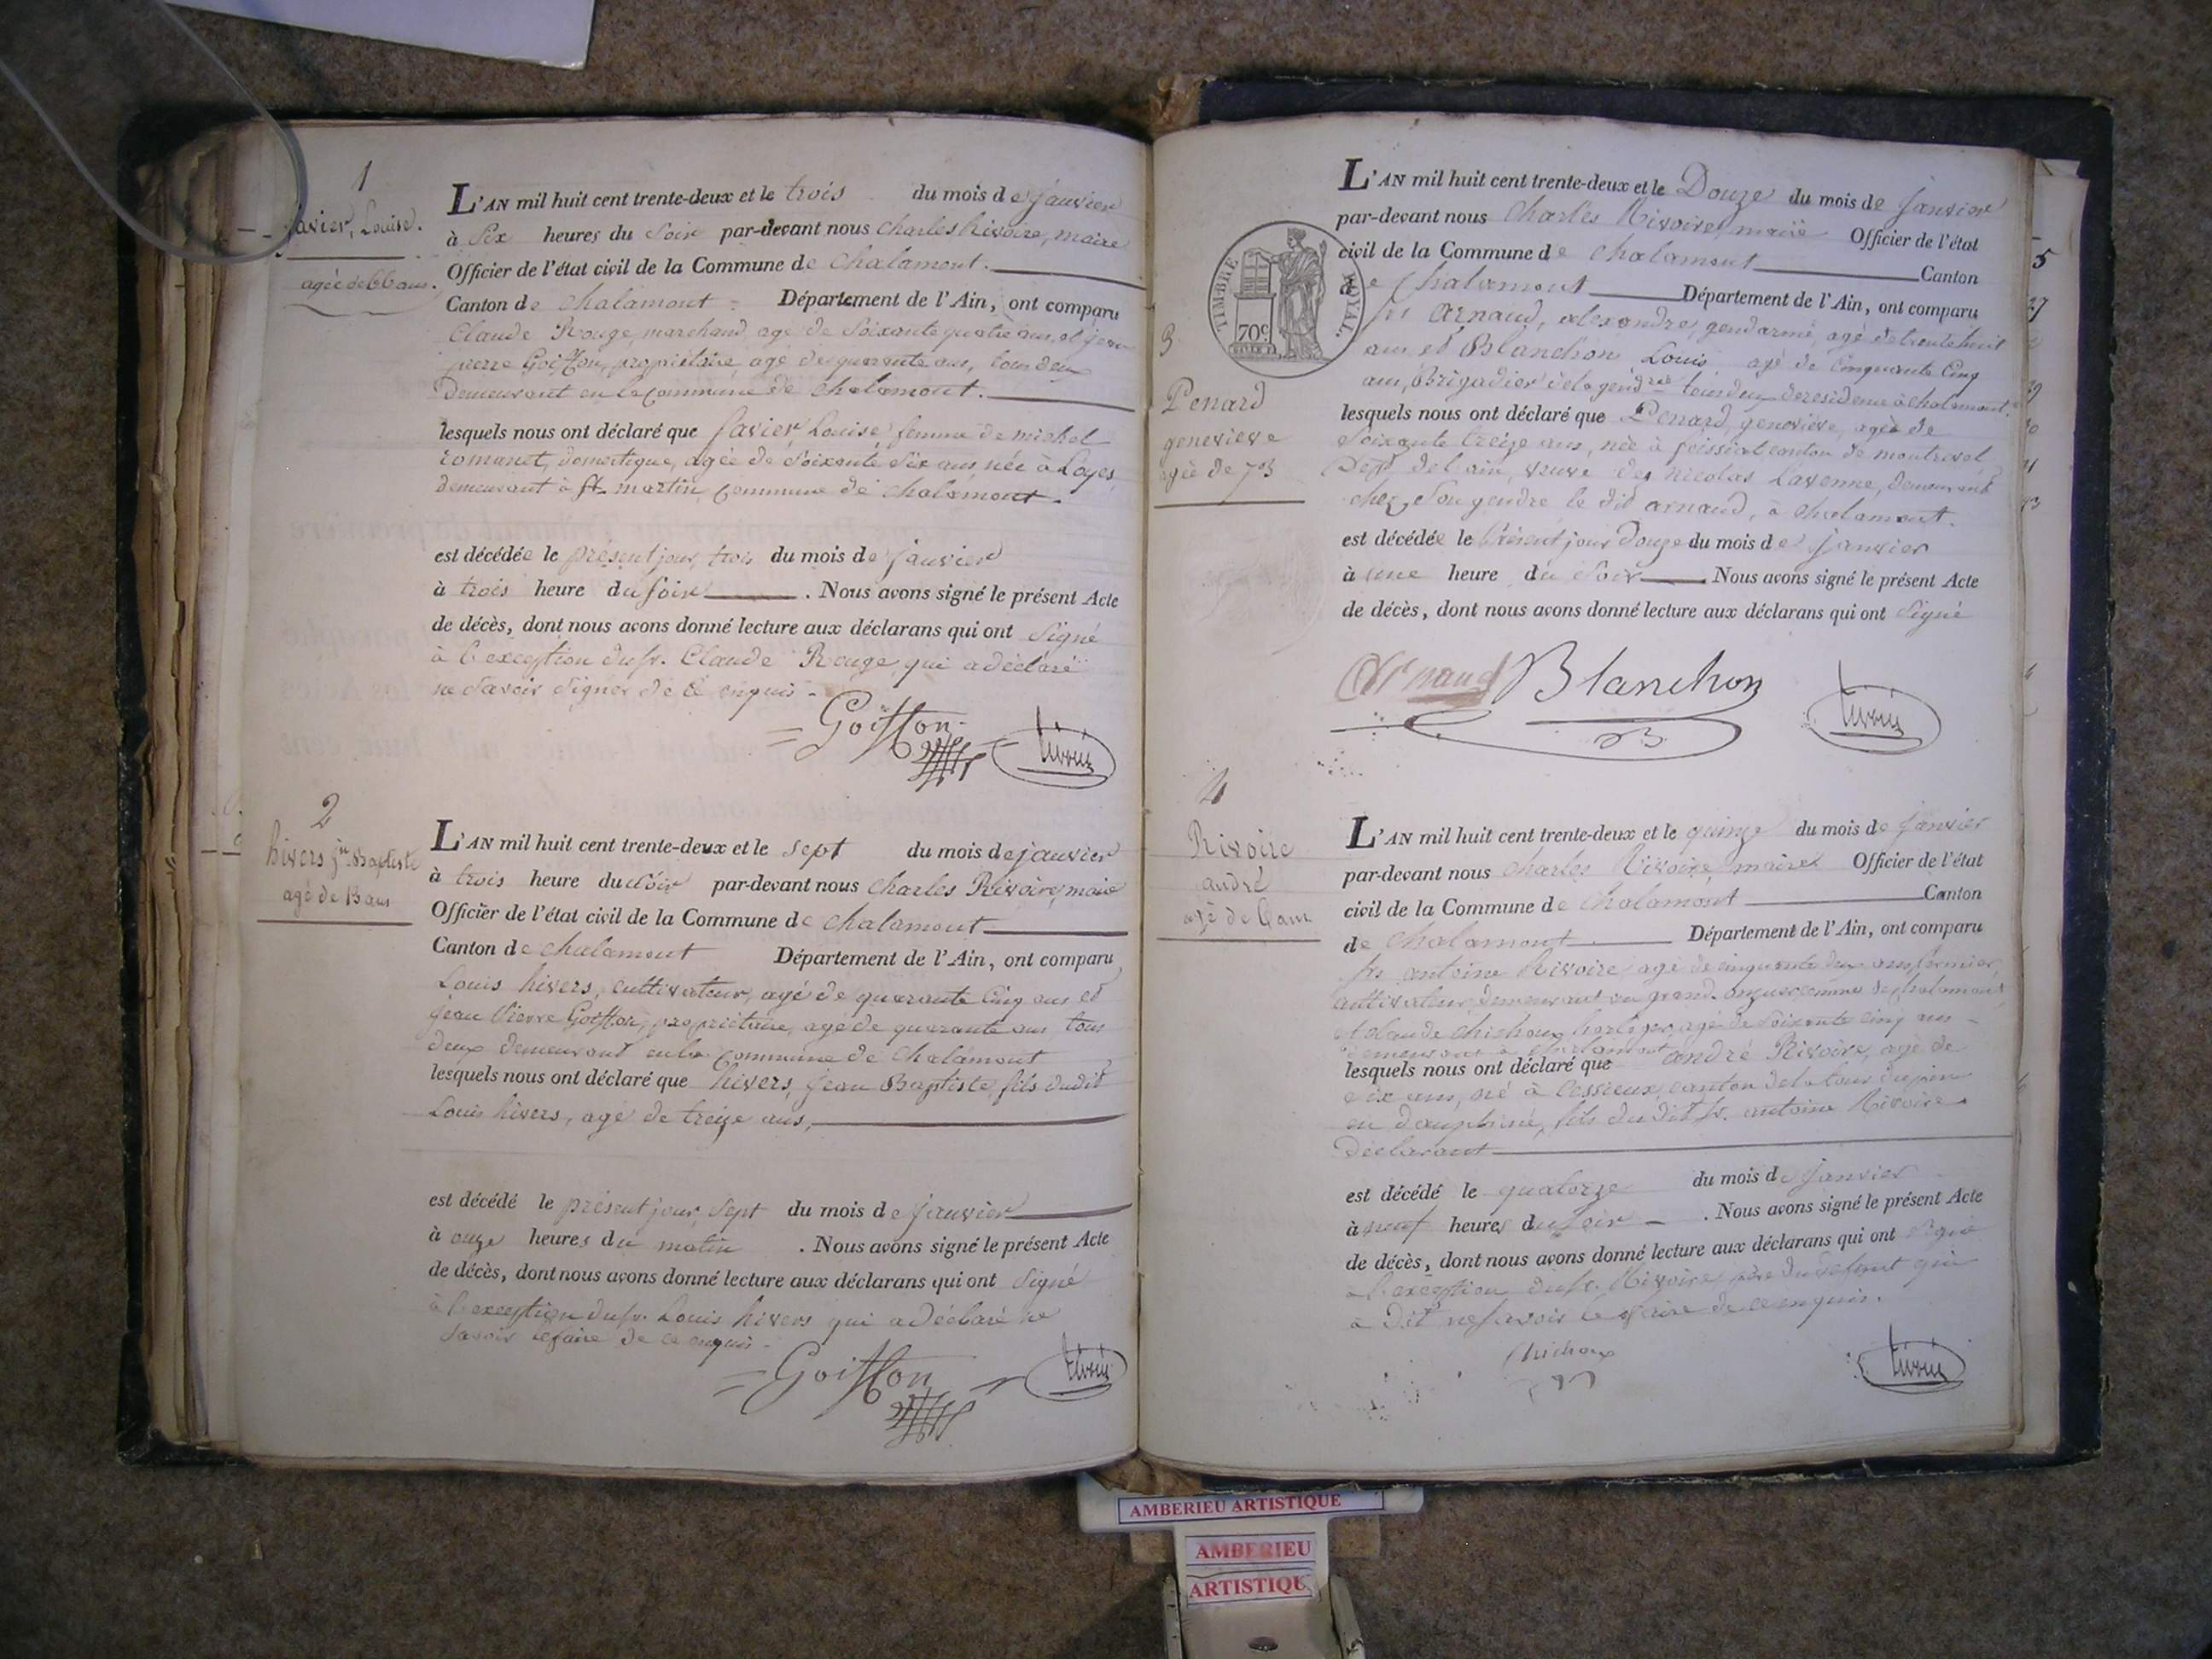 1
Favier, Louise.
agée de 66 ans.
L'AN mil huit cent trente-deux et le trois du mois de janvier
à Six heures du Soir par-devant nous Charles Rivoire, maire
Officier de l'état civil de la Commune de Chalamont.
Canton de Chalamont Département de l'Ain, ont comparu
Claude Rouge, marchand, agé de Soixante quatre ans, et jean
pierre Goiffon, propriétaire, agé de quarante ans, tous deux
Demeurant en la Commune de Chalamont.
lesquels nous ont déclaré que favier, Louise, femme de michel
romanet, domestique, agée de Soixante Six ans, née à Loyes,
demeurant à St. martin, Commune de Chalamont.
est décédée le présent jour, trois du mois de janvier
à trois heure du Soir . Nous avons signé le présent Acte
de décès, dont nous avons donné lecture aux déclarans qui ont Signé
à l'exception du sr. Claude Rouge, qui a déclaré
ne Savoir Signer de ce enquis -
Goiffon
2
hivers jn Baptiste
agé de 13 ans
L'AN mil huit cent trente-deux et le sept du mois de janvier
à trois heure du Soir par-devant nous Charles Rivoire, maire
Officier de l'état civil de la Commune de Chalamont
Canton de Chalamont Département de l'Ain, ont comparu
Louis hivers, cultivateur, agé de quarante Cinq ans et
Jean Pierre Goiffon, propriétaire, agé de quarante ans tous
deux demeurant en la Commune de Chalamont
lesquels nous ont déclaré que hivers, Jean Baptiste, fils dudit
Louis hivers, agé de treize ans,
est décédé le présent jour, Sept du mois de janvier
à onze heures du matin . Nous avons signé le présent Acte
de décès, dont nous avons donné lecture aux déclarans qui ont Signé
à l'exception du sr. Louis hivers qui a déclaré ne
Savoir le faire de ce enquis -
Goiffon
TIMBRE ROYAL.
70c.
3
Penard
genevieve
agée de 73
L'AN mil huit cent trente-deux et le Douze du mois de janvier
par-devant nous Charles Rivoire, maire Officier de l'état
civil de la Commune de Chalamont Canton
de Chalamont Département de l'Ain, ont comparu
srs Arnaud, alexandre, gendarme, agé de trente huit
ans et Blanchon Louis agé de Cinquante Cinq
ans, Brigadier de la gendrie tous deux de residence à chalamont.
lesquels nous ont déclaré que Penard, geneviève, agée de
Soixante treize ans, née à foissiat canton de montrevel
Dept. de l'ain, veuve de Nicolas Lavenne, demeurant
chez Son gendre le dit arnaud, à Chalamont.
est décédée le Présent jour Douze du mois de janvier
à une heure du Soir . Nous avons signé le présent Acte
de décès, dont nous avons donné lecture aux déclarans qui ont Signé
Arnaud Blanchon
4
Rivoire
andré
agé de 6 ans
L'AN mil huit cent trente-deux et le quinze du mois de janvier
par-devant nous Charles Rivoire, maire Officier de l'état
civil de la Commune de Chalamont Canton
de Chalamont Département de l'Ain, ont comparu
srs antoine Rivoire agé de cinquante deux ans fermier,
cultivateur, demeurant au grand commune de Chalamont
et Claude Chichoux, horloger, agé de Soixante cinq ans -
demeurant à Chalamont
lesquels nous ont déclaré que andré Rivoire, agé de
six ans, né à Cessieux, canton de la tour du pin
en dauphiné, fils du dit sr. antoine Rivoire
Déclarant
est décédé le quatorze du mois de janvier
à neuf heures du Soir . Nous avons signé le présent Acte
de décès, dont nous avons donné lecture aux déclarans qui ont Signé
à l'exception du sr. Rivoire, père du défunt qui
a Dit ne savoir le faire de ce enquis.
Chichoux
5
AMBERIEU ARTISTIQUE
AMBERIEU
ARTISTIQU